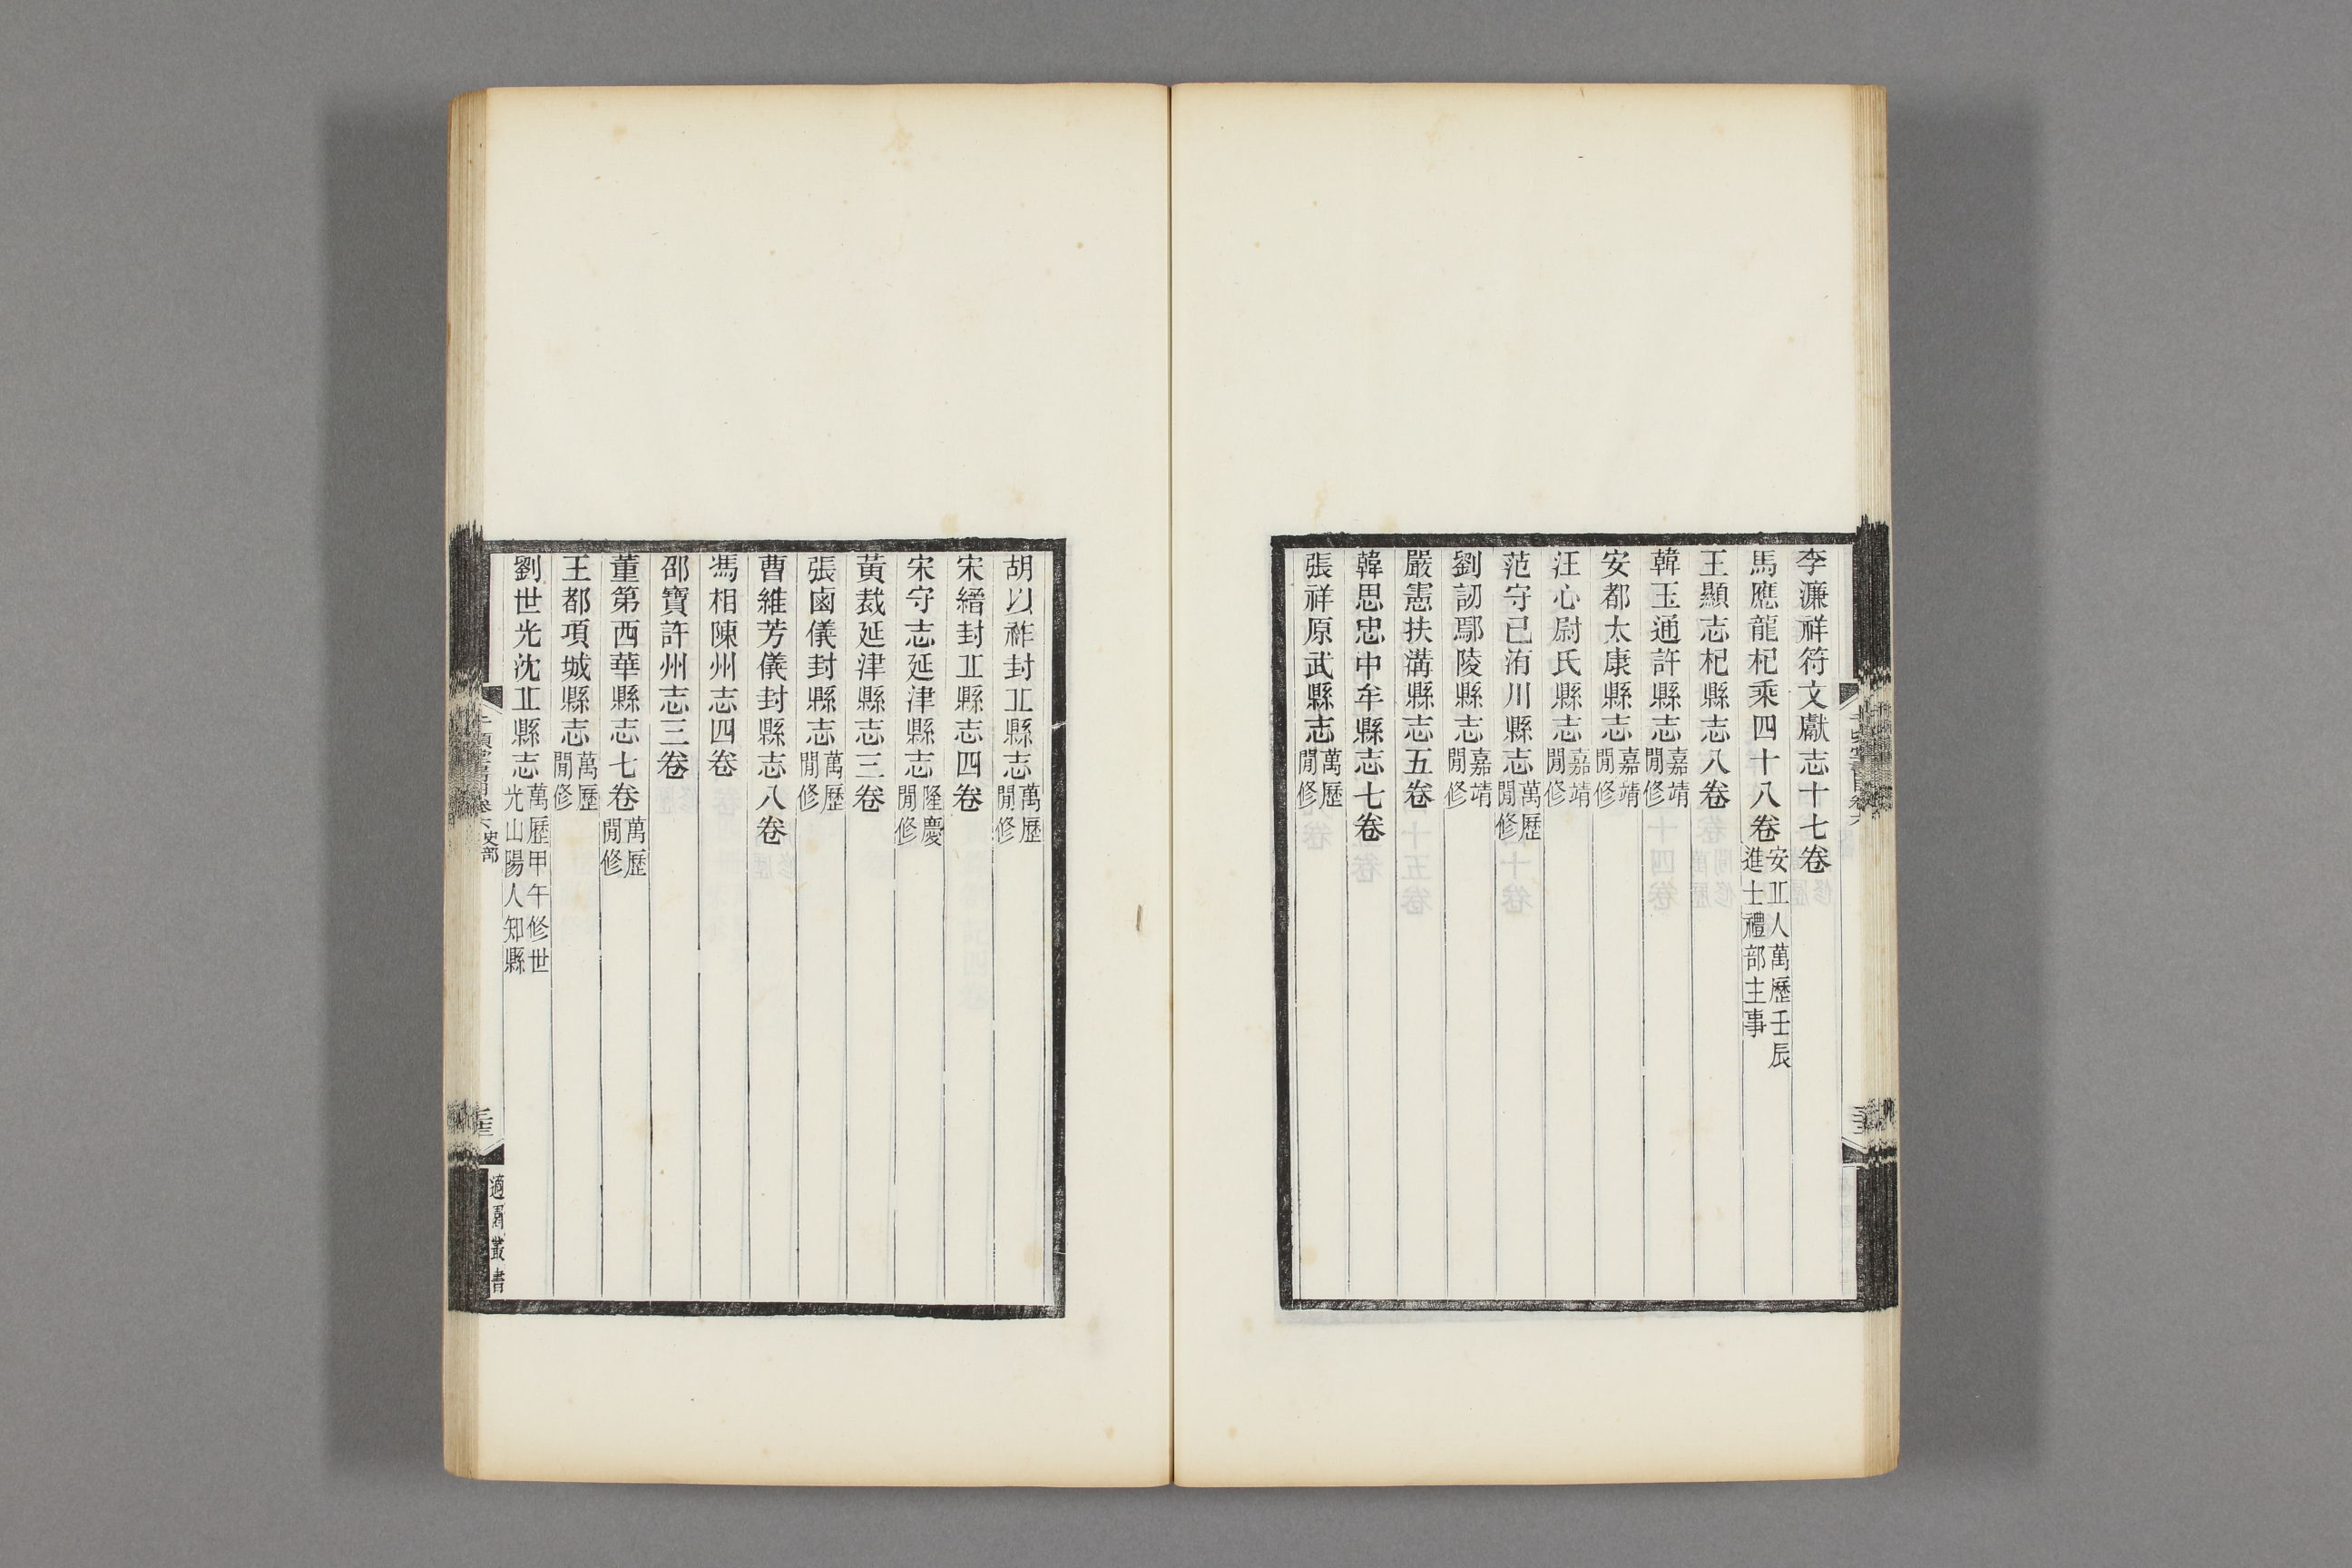 李濂祥符文獻志十七卷
馬應龍杞乘四十八卷安𠀉人萬歷壬辰進士禮部主事
王顯志杞縣志八卷
韓玉通許縣志嘉靖閒修
安都太康縣志嘉靖閒修
汪心尉氏縣志嘉靖閒修
范守己洧川縣志萬歷閒修
劉訒鄢陵縣志嘉靖閒修
嚴憲扶溝縣志五卷
韓思忠中牟縣志七卷
張祥原武縣志萬歷閒修
胡以祚封𠀉縣志萬歷閒修
宋縉封𠀉縣志四卷
宋守志延津縣志隆慶閒修
黃裁延津縣志三卷
張鹵儀封縣志萬歷閒修
曹維芳儀封縣志八卷
馮相陳州志四卷
邵寶許州志三卷
董第西華縣志七卷萬歷閒修
王都項城縣志萬歷閒修
劉世光沈𠀉縣志萬歷甲午修世光山陽人知縣
卷六史部
適園叢書